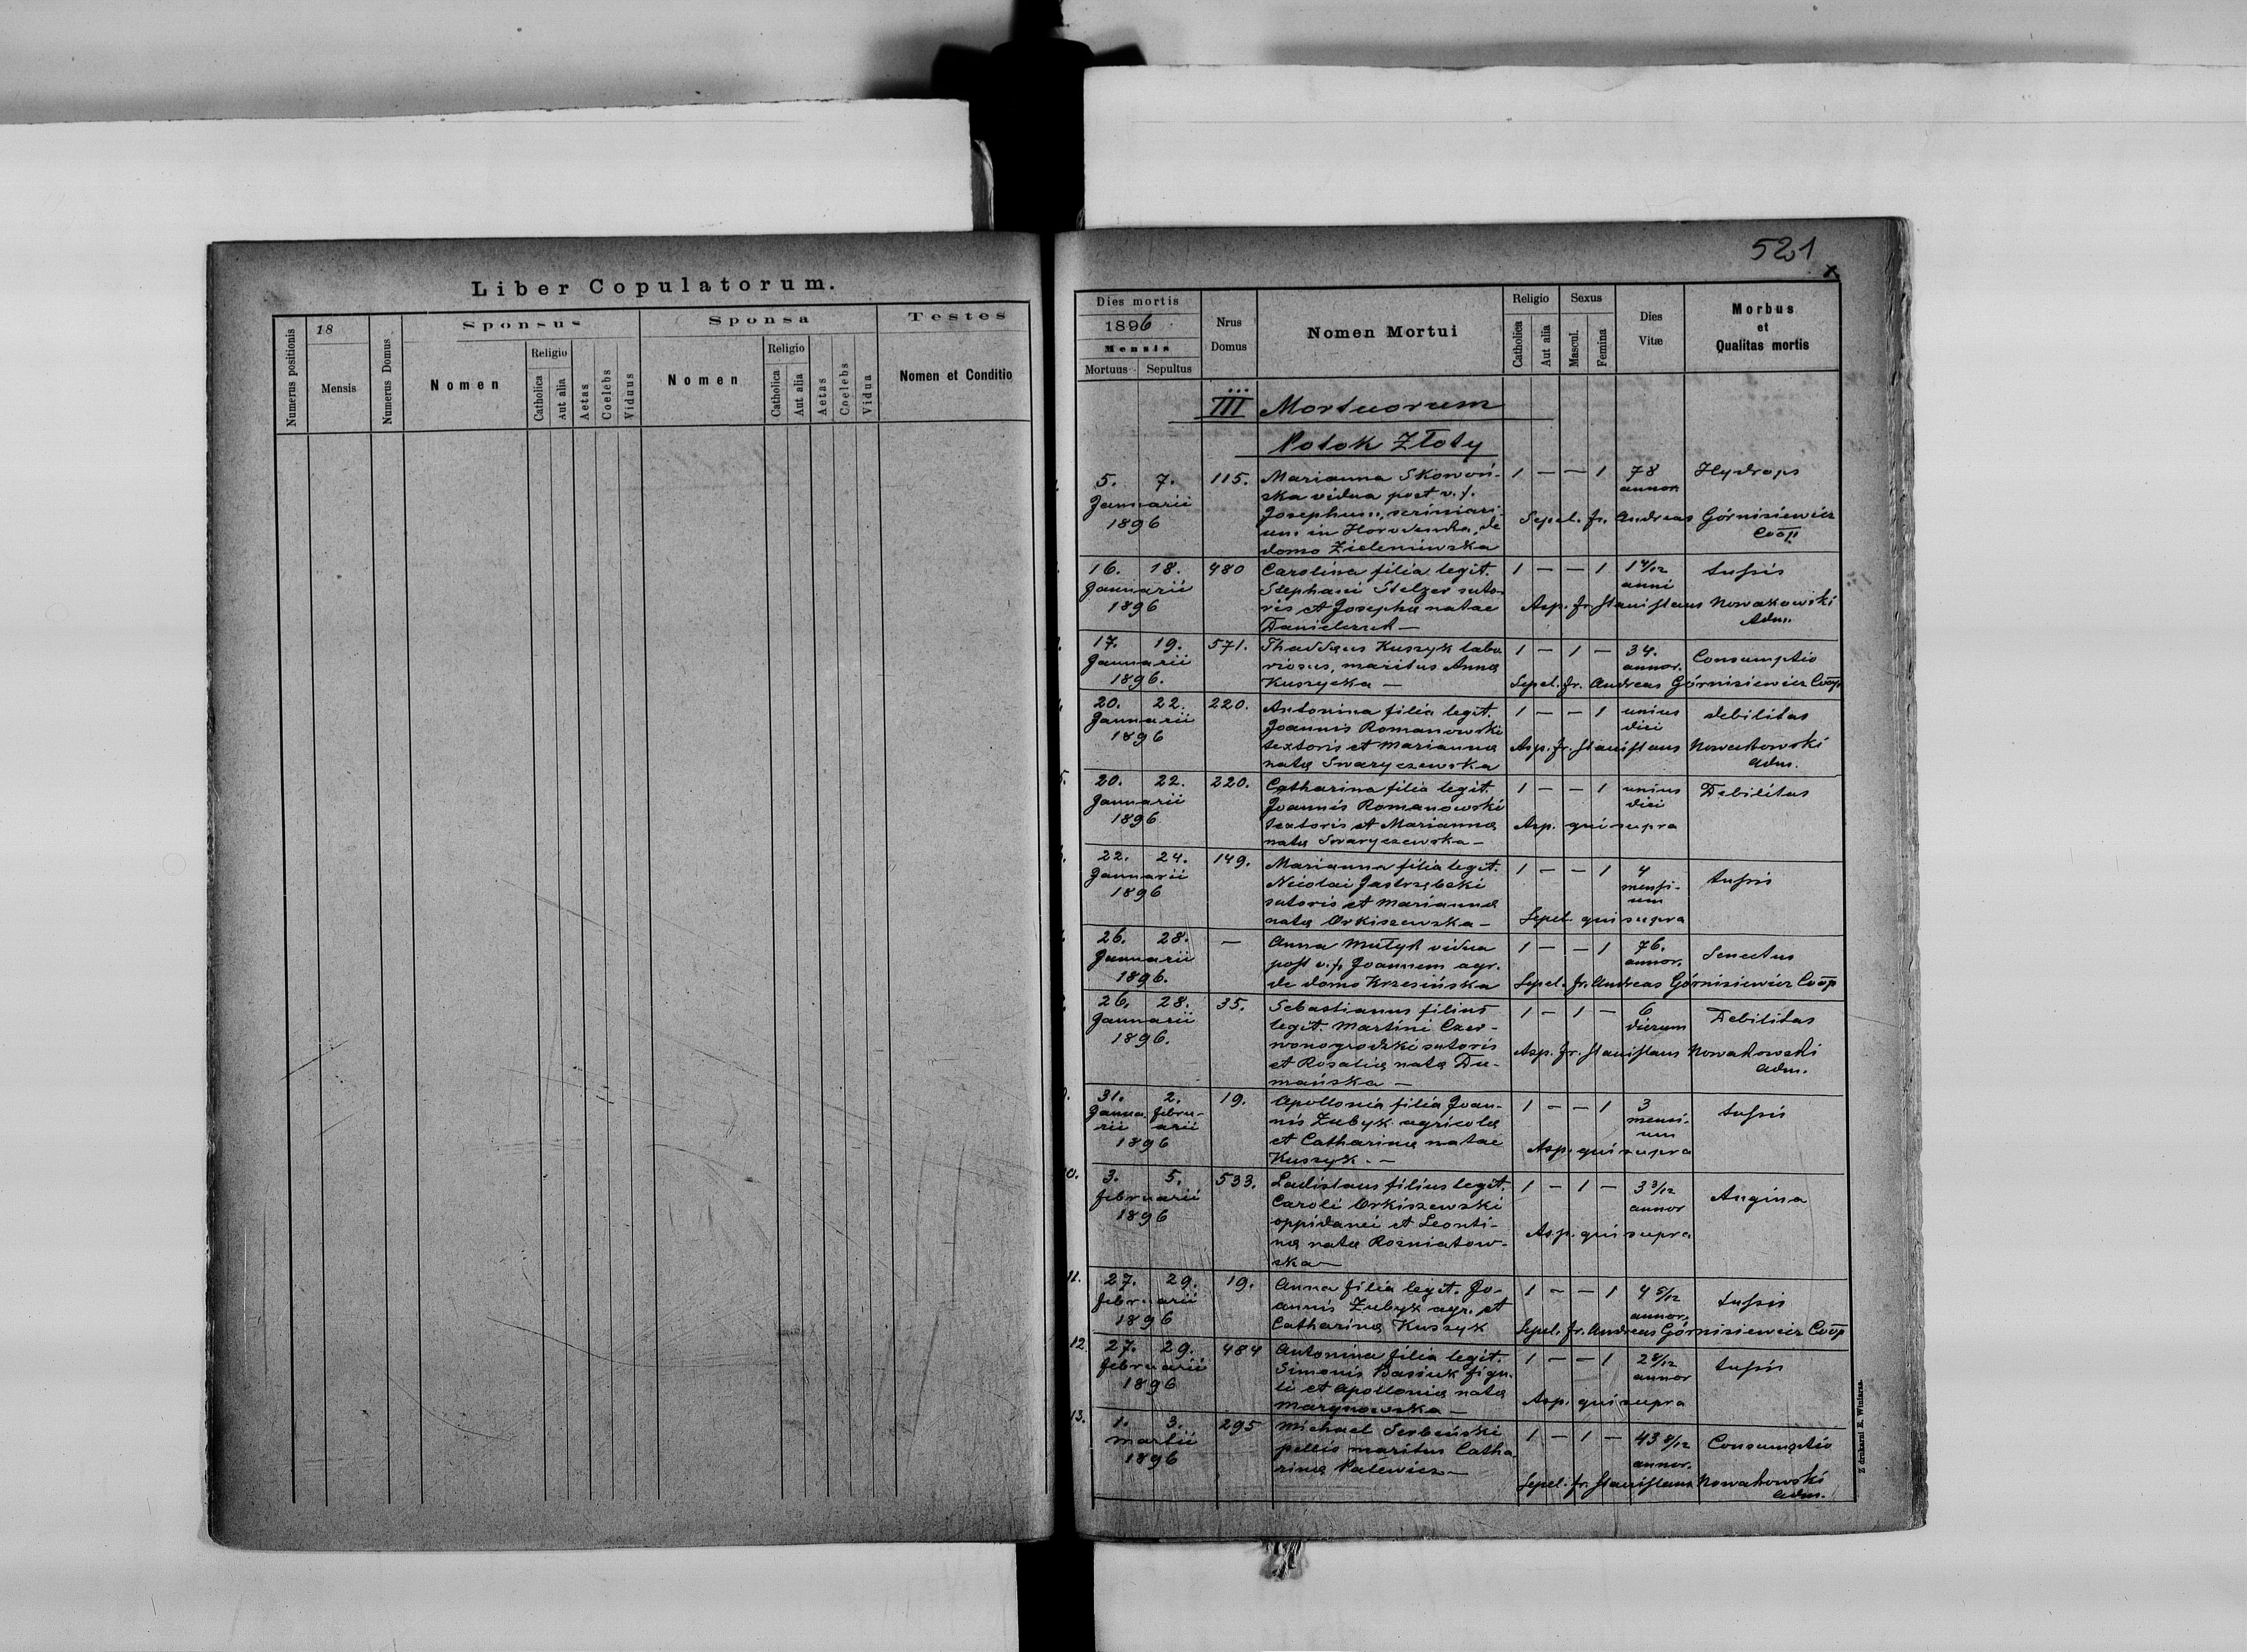 Liber Copulatorum.
Numerus positionis
18
Mensis
Numerus Domus
Sponsus
Nomen
Religio
Catholica
Aut alia
Aetas
Coelebs
Viduus
Sponsa
Nomen
Religio
Catholica
Aut alia
Aetas
Coelebs
Vidua
Testes
Nomen et Conditio
521
Dies mortis
1896
Mensis
Mortuus
Sepultus
Nrus
Domus
Nomen Mortui
Religio
Catholica
Aut alia
Sexus
Mascul.
Femina
Dies
Vitæ
Morbus
et
Qualitas mortis
III Mortuorum
Potok Złoty
5. 7. 115. Marianna Skowoń- 1 — — 1 78 Hydrops
ska vidua post v. f. annor.
Januarii
Josephum, scriniari-
1896
um in Horodenka, de Sepel. fr. Andreas Górnisiewicz
domo Zieleniewska Coop.
16. 18. 480 Carolina filia legit. 1 — — 1 1 4/12 tussis
Januarii Stephani Stelzer suto- anni
1896 ris et Josephæ natae Asp. fr. Stanislaus Nowakowski
Danielczuk — Adm.
17. 19. 571. Thaddæus Kuszyk labo- 1 — 1 — 34. Consumptio
Januarii riosus, maritus Annæ annor.
1896. Kuszycka — Sepel. fr. Andreas Górnisiewicz Coop.
20. 22. 220. Antonina filia legit. 1 — — 1 unius debilitas
Januarii Joannis Romanowski diei
1896 textoris et Mariannæ Asp. fr. Stanislaus Nowakowski
natæ Swaryczewska Adm.
5. 20. 22. 220. Catharina filia legit. 1 — — 1 unius Debilitas
Januarii Joannis Romanowski diei
1896 textoris et Mariannæ Asp. qui supra
natæ Swaryczewska —
22. 24. 149. Marianna filia legit. 1 — — 1 4 tussis
Januarii Nicolai Jastrzębski mensi-
1896 sutoris et Mariannæ um
natæ Orkiszewska — Sepel. qui supra
26. 28. — Anna Mutyk vidua 1 — — 1 76. Senectus
Januarii post v. f. Joannem agr. annor.
1896. de domo Krzesińska Sepel. fr. Andreas Górnisiewicz Coop
26. 28. 35. Sebastianus filius 1 — 1 — 6 Debilitas
Januarii legit. Martini Czer- dierum
1896. wonogrodzki sutoris Asp. fr. Stanislaus Nowakowski
et Rosaliæ natæ Du- Adm.
mańska —
31. 2. 19. Apollonia filia Joan- 1 — — 1 3 tussis
Janua- febru- nis Zubyk agricolæ mensi-
rii arii um
1896 et Catharinæ natae Asp. qui supra
Kuszyk. —
10. 3. 5. 533. Ladislaus filius legit. 1 — 1 — 3 3/12 Angina
februarii Caroli Orkiszewski annor
1896 oppidanei et Leonti- Asp. qui supra
næ natæ Rozniatow-
ska —
11. 27. 29. 19. Anna filia legit. Jo- 1 — — 1 4 5/12 tussis
februarii annis Zubyk agr. et annor.
1896 Catharinæ Kuszyk Sepel. fr. Andreas Górnisiewicz Coop
12. 27. 29. 484 Antonina filia legit. 1 — — 1 2 8/12 tussis
februarii Simonis Basiuk figu- annor
1896 li et Apolloniæ natæ Asp. qui supra
Marynowska —
13. 1. 3. 295 Michael Serbeński 1 — 1 — 43 8/12 Consumptio
martii pellio maritus Catha- annor.
1896 rinæ Palewicz — Sepel. fr. Stanislaus Nowakowski
Adm.
Z drukarni E. Winiarza.